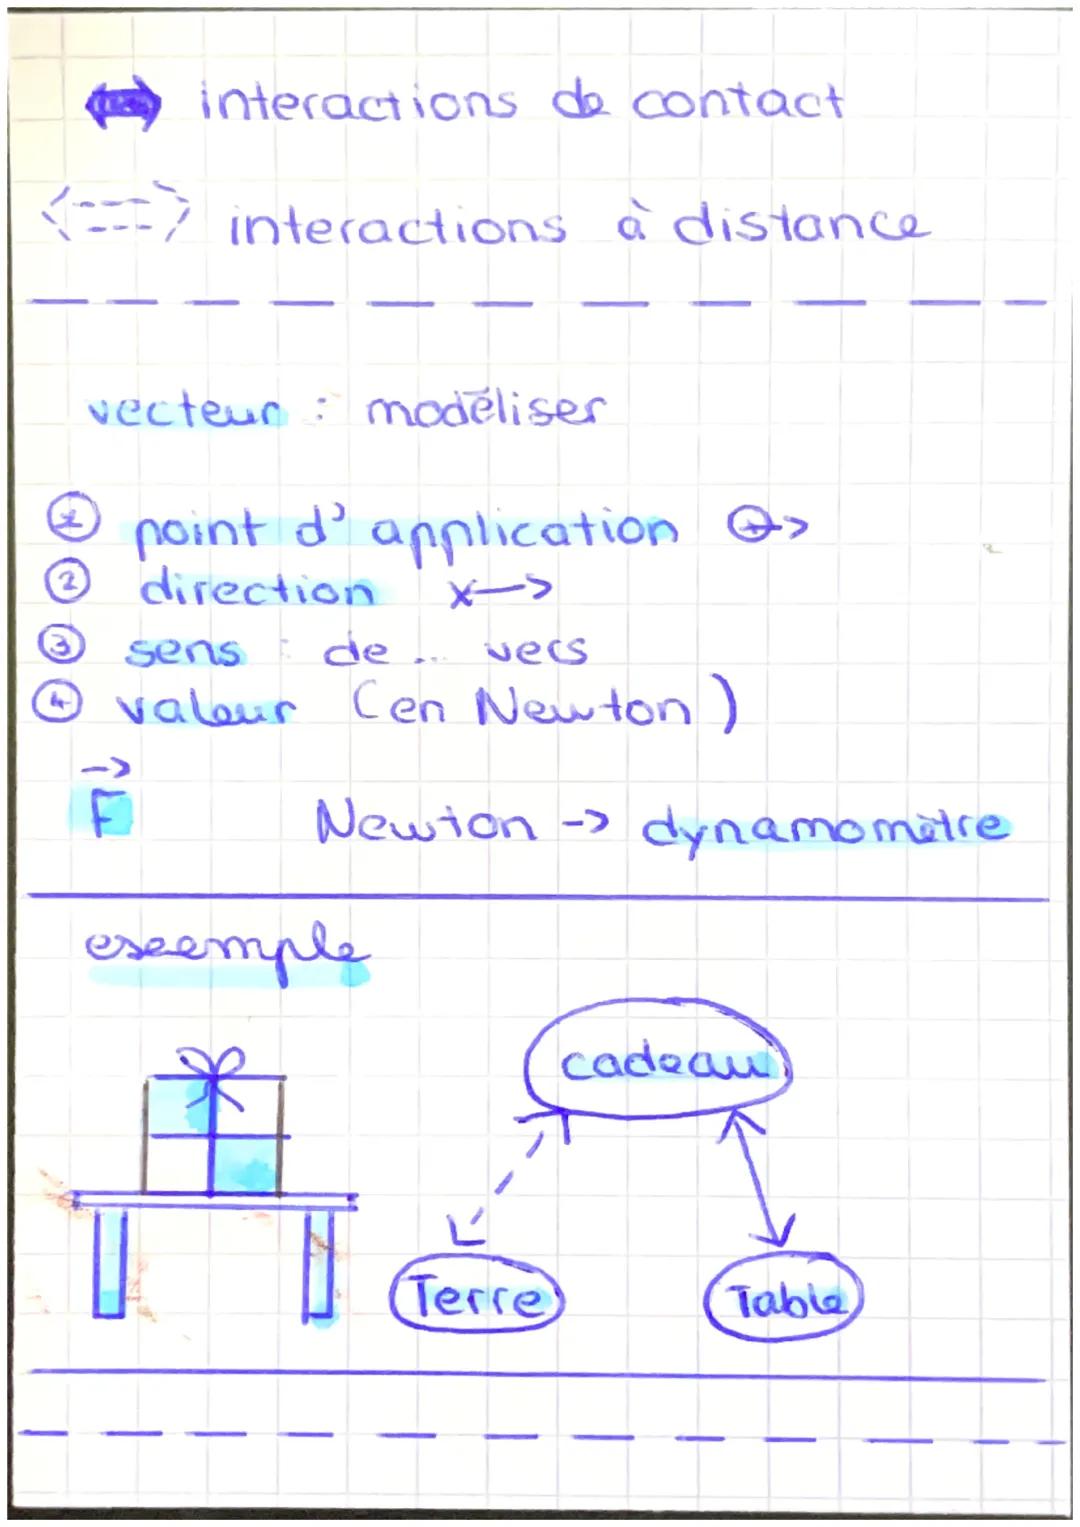 interactions de contact
interactions à distance
vecteur : modéliser
① point d'application
② direction x->
③ sens : de .. vers
④ valeur (en Newton)
F Newton -> dynamomètre
exemple
cadeau
Terre Table